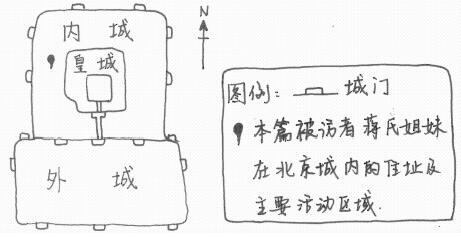 内城
皇城
外城
N
图例： 城门
本篇被访者蒋氏姐妹
在北京城内的住址及
主要活动区域.